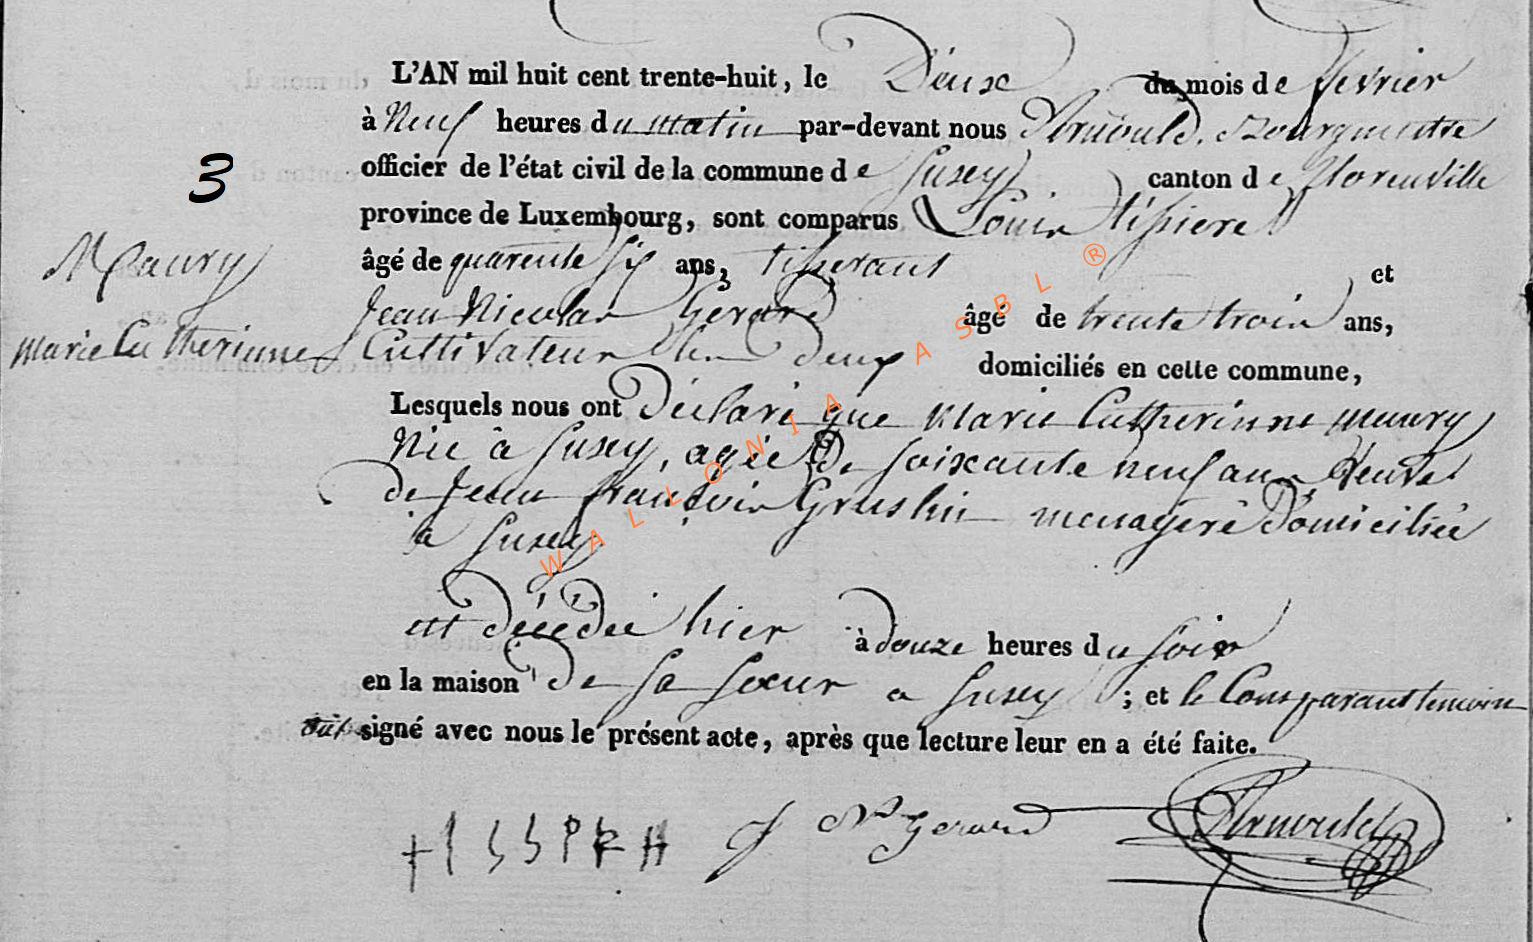 L'AN mil huit cent trente-huit, le Deux du mois de fevrier
à Neuf heures du matin par-devant nous Arnould, Bourgmestre
officier de l'état civil de la commune de Suxey canton de florenville
3
province de Luxembourg, sont comparus Louis tissiere
Maury
âgé de quarente six ans, tisserant et
Jean Nicolas Gerard âgé de trente trois ans,
Marie Catherinne
Cultivateur les deux domiciliés en cette commune,
Lesquels nous ont Déclaré que Marie Catherinne Maury
Née à Suxey, agée de soixante neuf ans Veuve
de Jean françois Groslin menagere Domiciliée
à Suxey
WALLONIA ASBL ®
est décédée hier à douze heures du soir
en la maison De sa soeur a Suxey ; et le Comparant temoins
ont signé avec nous le présent acte, après que lecture leur en a été faite.
J N Gerard Arnould